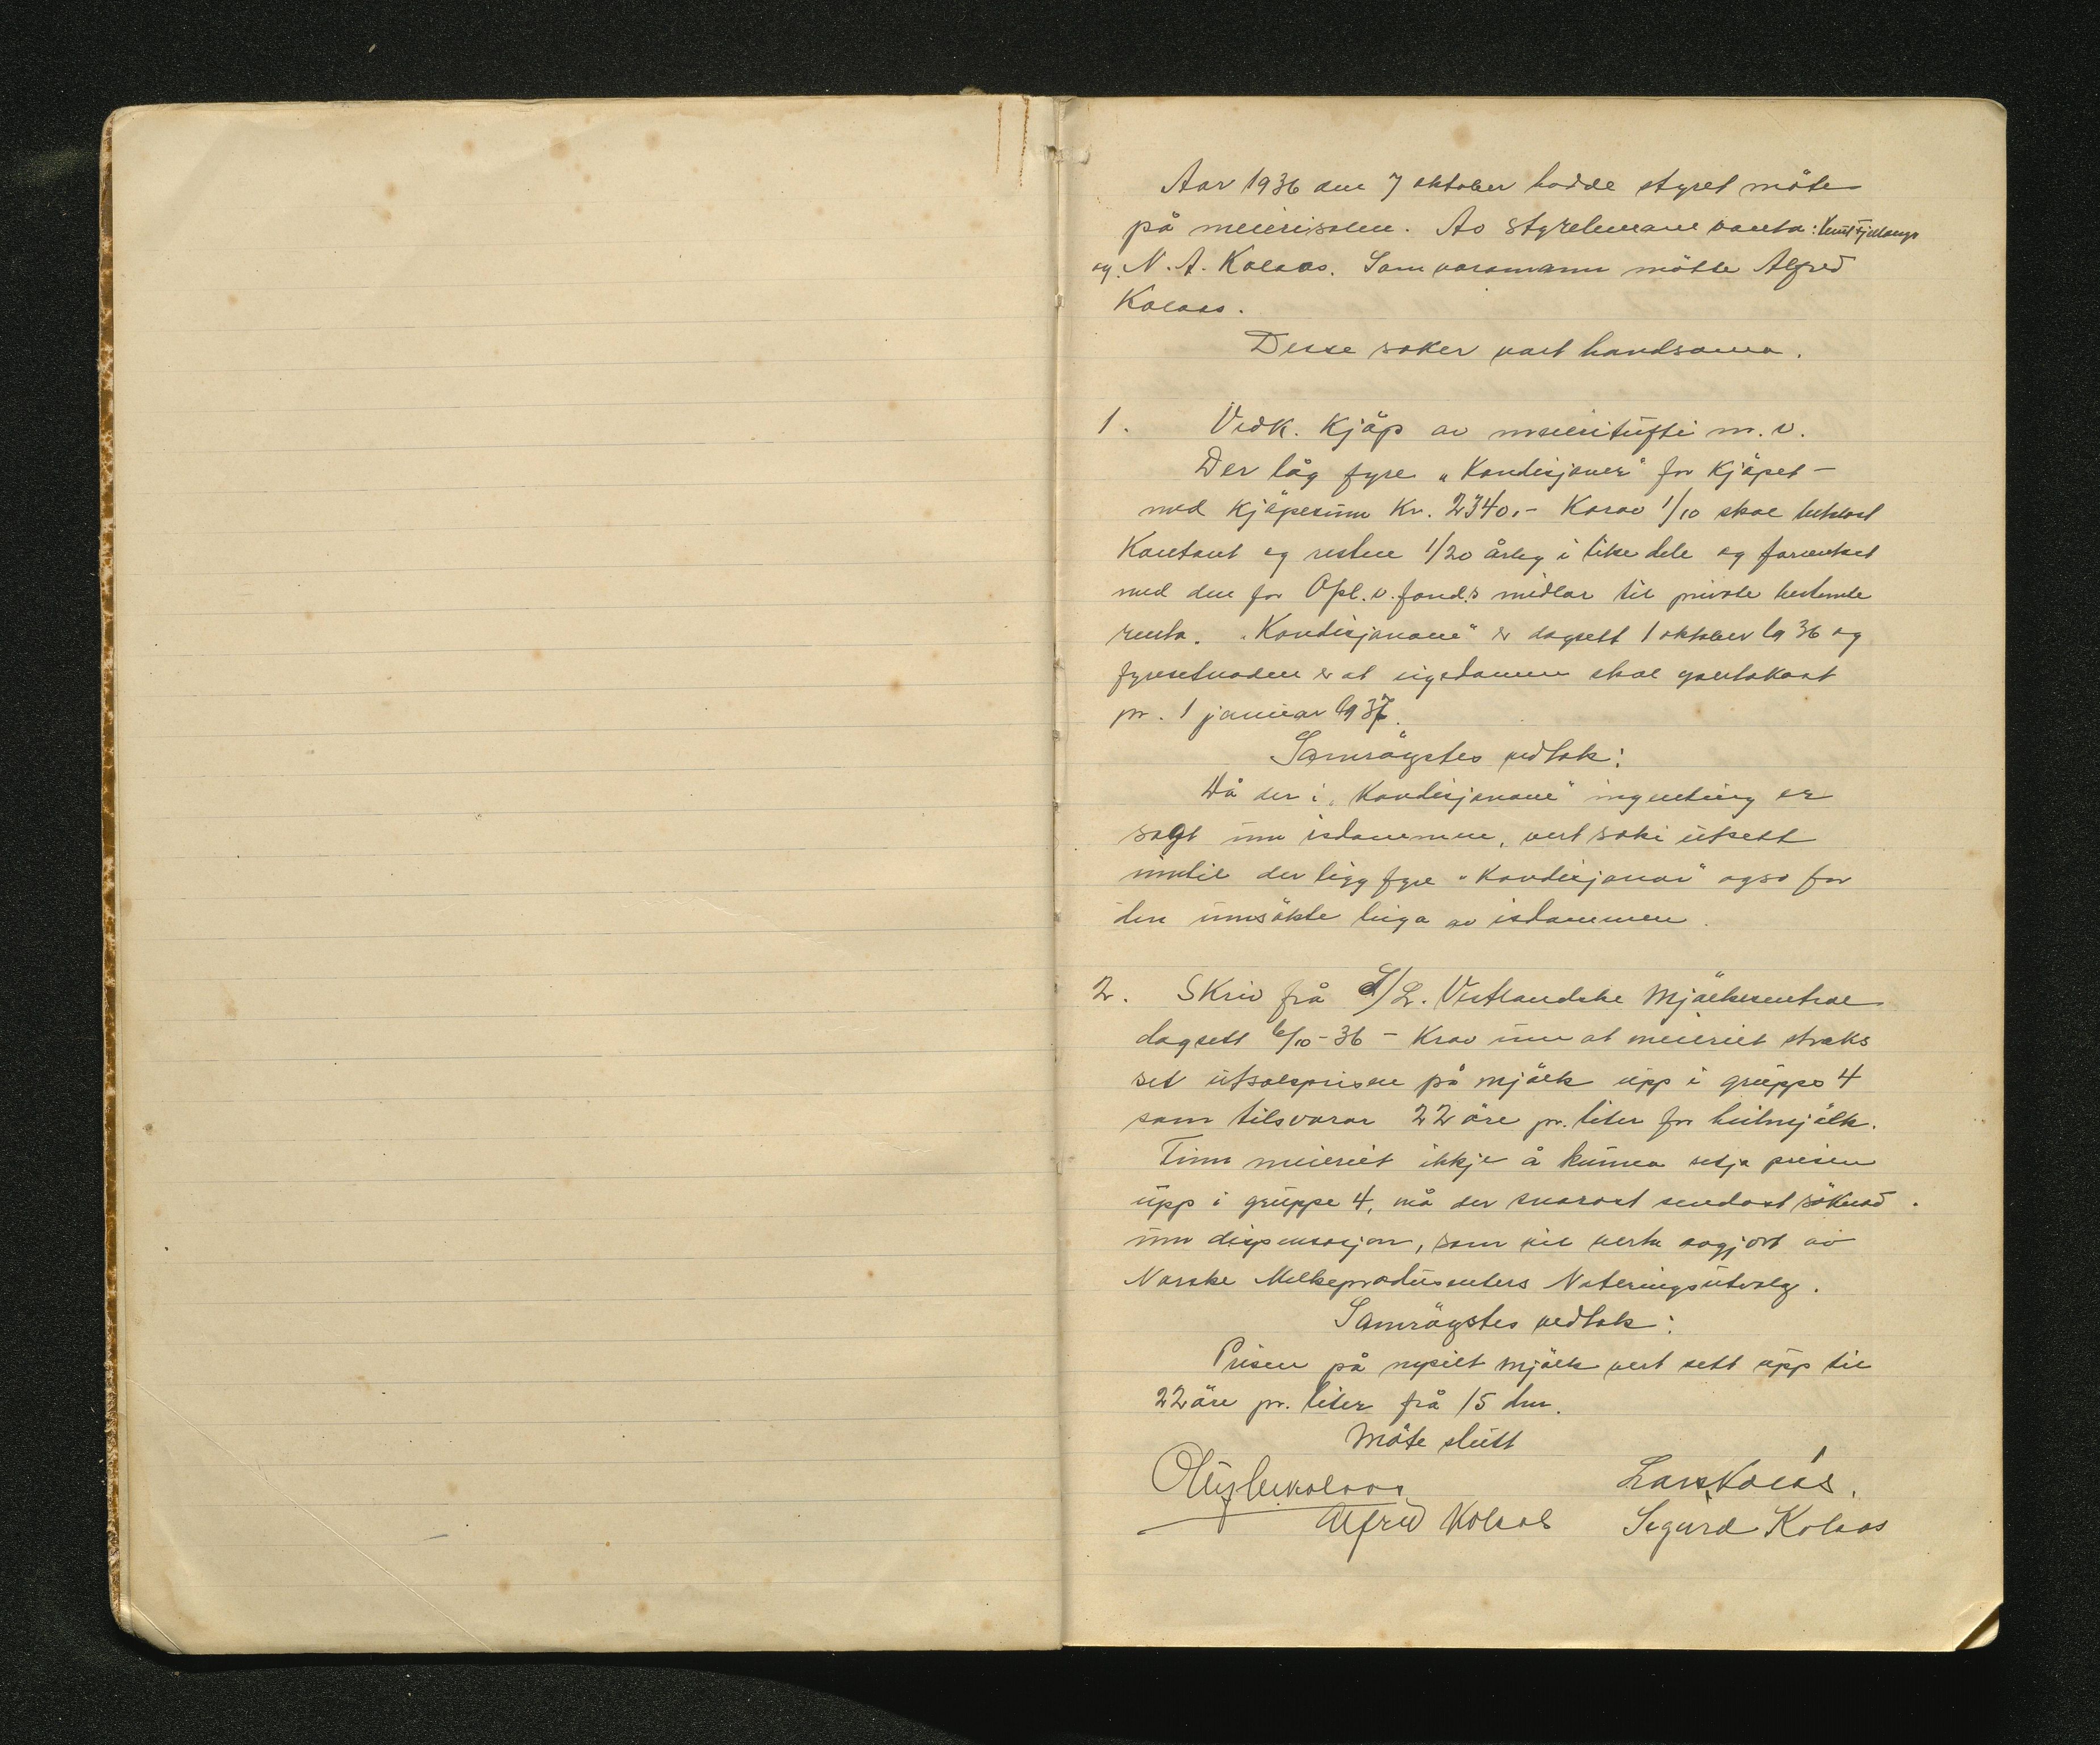 Aar 1936 den 7 oktober hadde styret möte
på meierisalen. Av styrelemane vanta: Knut
og N. A. Kolaas. Som varamann mötte Alfred
Kolaas.
Desse saker vart handsama.
1. Vedk. Kjöp av meieritufti m.v.
Der låg fyre "Kondisjoner" for Kjöpet -
med Kjöpesum Kr. 2340.- Korav 1/10 skal betalast
Kontant og resten 1/20 årleg i like dele og forrentast
med den for Opl.v.fond.s midlar til private bestemte
renta. "Kondisjonane" er dagsett 1 oktober 1936 og
fyresetnaden er at eigedommen skal yvertakast
pr. 1 januar 1937.
Samröystes vedtak:
Då der i "Kondisjonane" ingenting er
sagt um isdammen, vert saki utsett
inntil der ligg fyre "Kondisjonar" også for
den umsökte leiga av isdammen.
2. Skriv frå S/L. Vestlandske Mjölkesentral
dagsett 6/10-36 - Krav um at meieriet straks
set utsalsprisen på mjölk upp i gruppe 4
som tilsvarar 22 öre pr. liter for heilmjölk.
Finn meieriet ikkje å kunna setja prisen
upp i gruppe 4, må der snarast sendast söknad
um dispensasjon, som vil verta avgjort av
Norske Melkeprodusenters Noteringsutvalg.
Samröystes vedtak:
Prisen på nysilt mjölk vert sett upp til
22 öre pr. liter frå 15 dm.
Möte slutt
Lars Kolås.
Alfred Kolaas Sigurd Kolaas